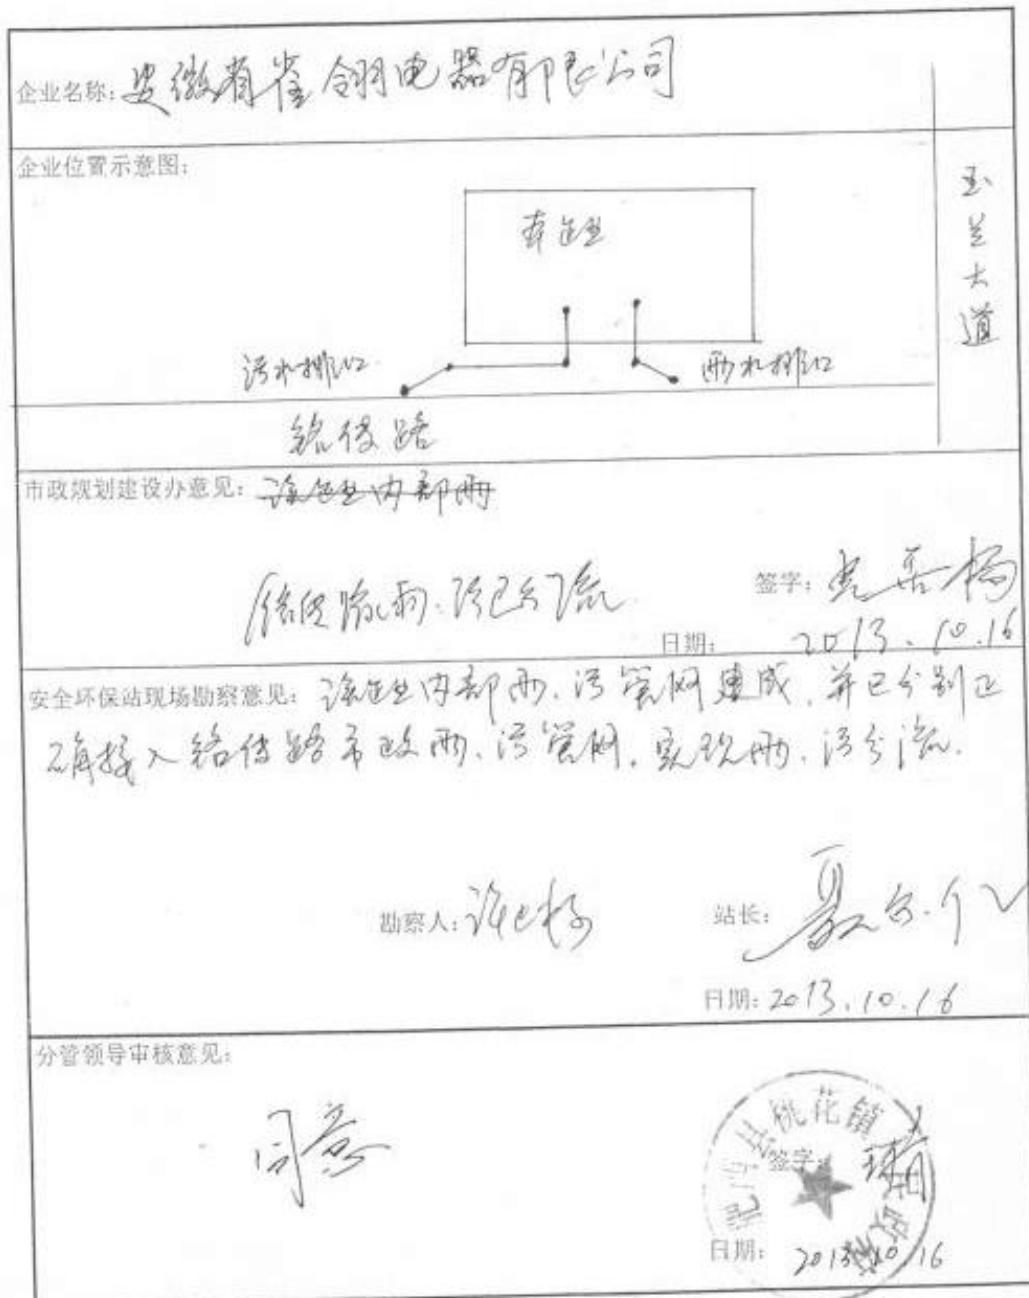 企业名称：安徽省雀翎电器有限公司
企业位置示意图：
本企业
玉兰大道
污水排口
雨水排口
路
市政规划建设办意见：该企业内部雨
路雨、污已分流
签字：
日期：2013.10.16
安全环保站现场勘察意见：该企业内部雨、污管网建成，并已分别正
确接入路市政雨、污管网，实现雨、污分流.
勘察人：
站长：
日期：2013.10.16
分管领导审核意见：
同意
肥西县桃花镇
签字：
日期：2013.10.16